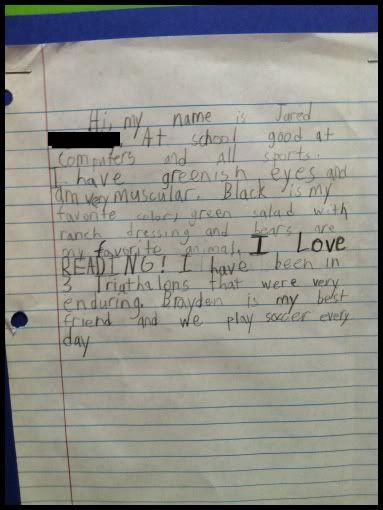 Hi, my name is Jared
. At school good at
Computers and all sports.
I have greenish eyes and
am very muscular. Black is my
favorite color, green salad with
ranch dressing and bears are
my favorite animal. I Love
READING! I have been in
3 Triathalons that were very
enduring. Brayden is my best
friend and we play soccer every
day